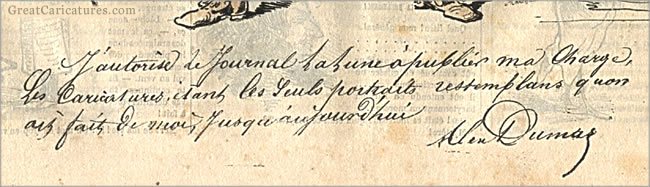 GreatCaricatures.com
J'autorise le Journal La Lune à publier ma Charge,
Les Caricatures, étant les Seuls portraits ressemblans qu'on
ait fait de moi, Jusqu'aujourd'hui
Alex Dumas